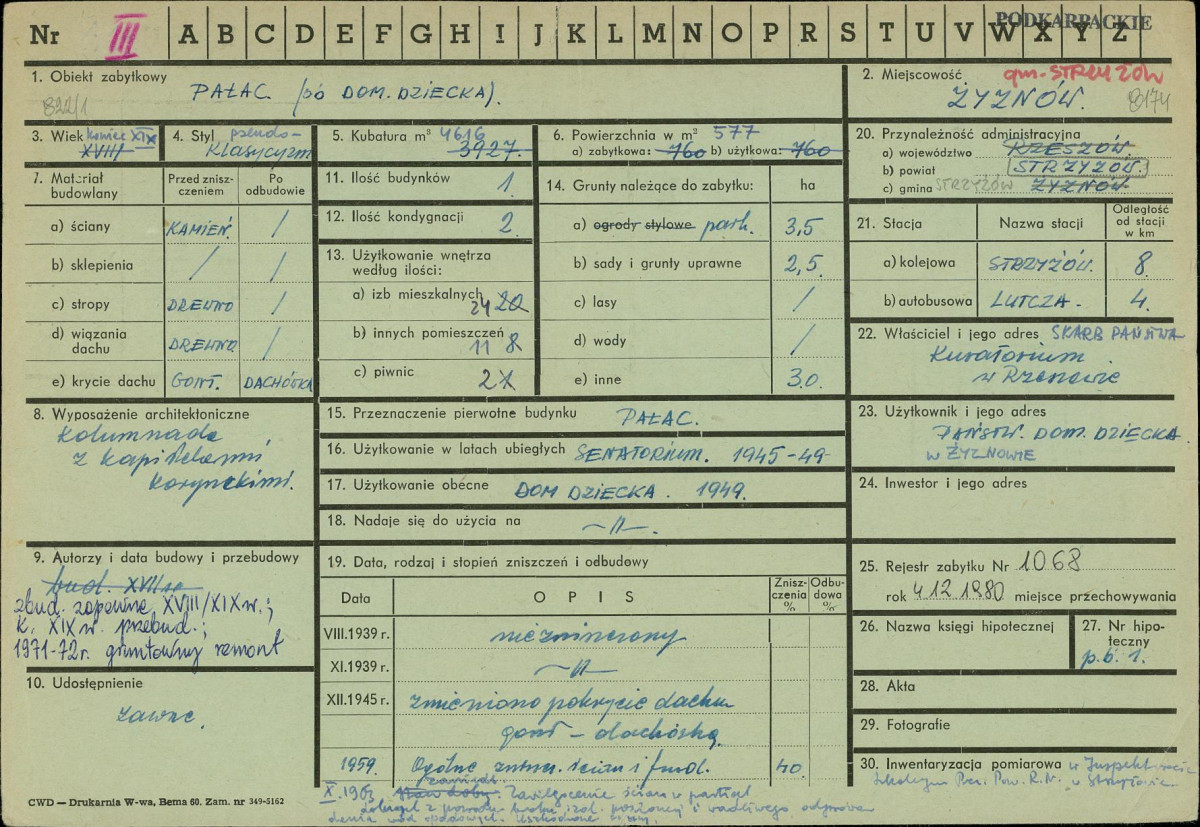 Nr III A B C D E F G H I J K L M N O P R S T U V W X Y Z
PODKARPACKIE
1. Obiekt zabytkowy
PAŁAC. /ob DOM. DZIECKA).
822/1
2. Miejscowość gm. STRZYŻÓW
ŻYZNÓW.
8174
3. Wiek koniec XIX
XVIII
4. Styl pseudo-
klasycyzm
5. Kubatura m³ 4616
3927.
6. Powierzchnia w m² 577
a) zabytkowa: 760 b) użytkowa: 760
20. Przynależność administracyjna
a) województwo RZESZÓW.
b) powiat STRZYŻÓW.
c) gmina STRZYŻÓW ŻYZNÓW
7. Materiał budowlany
Przed zniszczeniem
Po odbudowie
a) ściany KAMIEŃ. /
b) sklepienia / /
c) stropy DREWNO /
d) wiązania dachu DREWNO /
e) krycie dachu GONT. DACHÓWKA
11. Ilość budynków 1
12. Ilość kondygnacji 2
13. Użytkowanie wnętrza
według ilości:
a) izb mieszkalnych 24 20
b) innych pomieszczeń 11 8
c) piwnic 2
14. Grunty należące do zabytku: ha
a) ogrody stylowe park. 3,5
b) sady i grunty uprawne 2,5
c) lasy /
d) wody /
e) inne 3.0.
21. Stacja
Nazwa stacji
Odległość od stacji w km
a) kolejowa STRZYŻÓW. 8
b) autobusowa LUTCZA. 4.
22. Właściciel i jego adres SKARB PAŃSTWA
Kuratorium
w Rzeszowie
8. Wyposażenie architektoniczne
Kolumnada
z kapitelami
korynckimi.
15. Przeznaczenie pierwotne budynku PAŁAC.
16. Użytkowanie w latach ubiegłych SENATORIUM. 1945-49
17. Użytkowanie obecne DOM DZIECKA. 1949.
18. Nadaje się do użycia na —〃—.
23. Użytkownik i jego adres
PAŃSTW. DOM. DZIECKA
w ŻYZNOWIE
24. Inwestor i jego adres
9. Autorzy i data budowy i przebudowy
bud. XVII w
zbud. zapewne XVIII/XIX w.;
k. XIX w. przebud.;
1971-72 r. gruntowny remont
19. Data, rodzaj i stopień zniszczeń i odbudowy
Data
OPIS
Zniszczenia %
Odbudowa %
VIII.1939 r. niezmieniony
XI.1939 r. —〃—
XII.1945 r. zmieniono pokrycie dachu
gont - dachówką
1959. Ogólne zniszcz. ścian i fund. 40
X.1963 Zawilgocenie ścian w partiach
25. Rejestr zabytku Nr 1068
rok 4.12.1980 miejsce przechowywania
26. Nazwa księgi hipotecznej
27. Nr hipoteczny
p.b. 1.
10. Udostępnienie
zawsze.
28. Akta
29. Fotografie
30. Inwentaryzacja pomiarowa w Inspektoracie
Szkolnym Prez. Pow. R.N. w Strzyżowie
CWD — Drukarnia W-wa, Bema 60. Zam. nr 349-5162